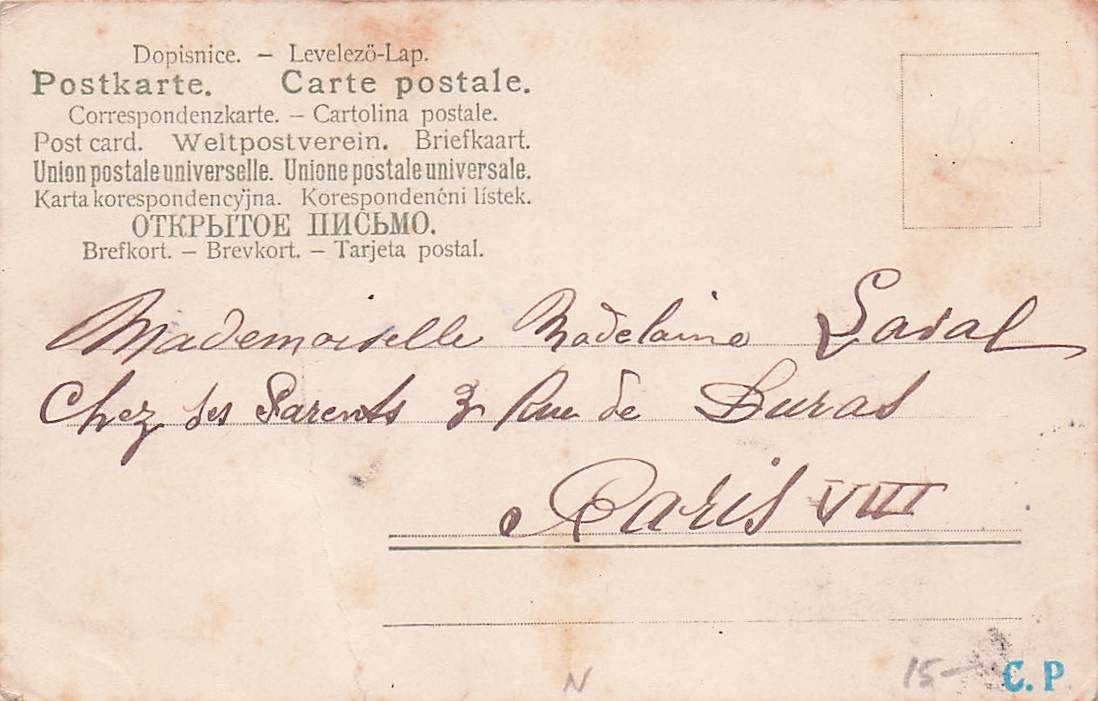 Dopisnice. – Levelező-Lap.
Postkarte. Carte postale.
Correspondenzkarte. – Cartolina postale.
Post card. Weltpostverein. Briefkaart.
Union postale universelle. Unione postale universale.
Karta korespondencyjna. Korespondenčni lístek.
ОТКРЫТОЕ ПИСЬМО.
Brefkort. – Brevkort. – Tarjeta postal.
Mademoiselle Madelaine Laval
Chez ses Parents 3 Rue de Duras
Paris VIII
N 15– C. P